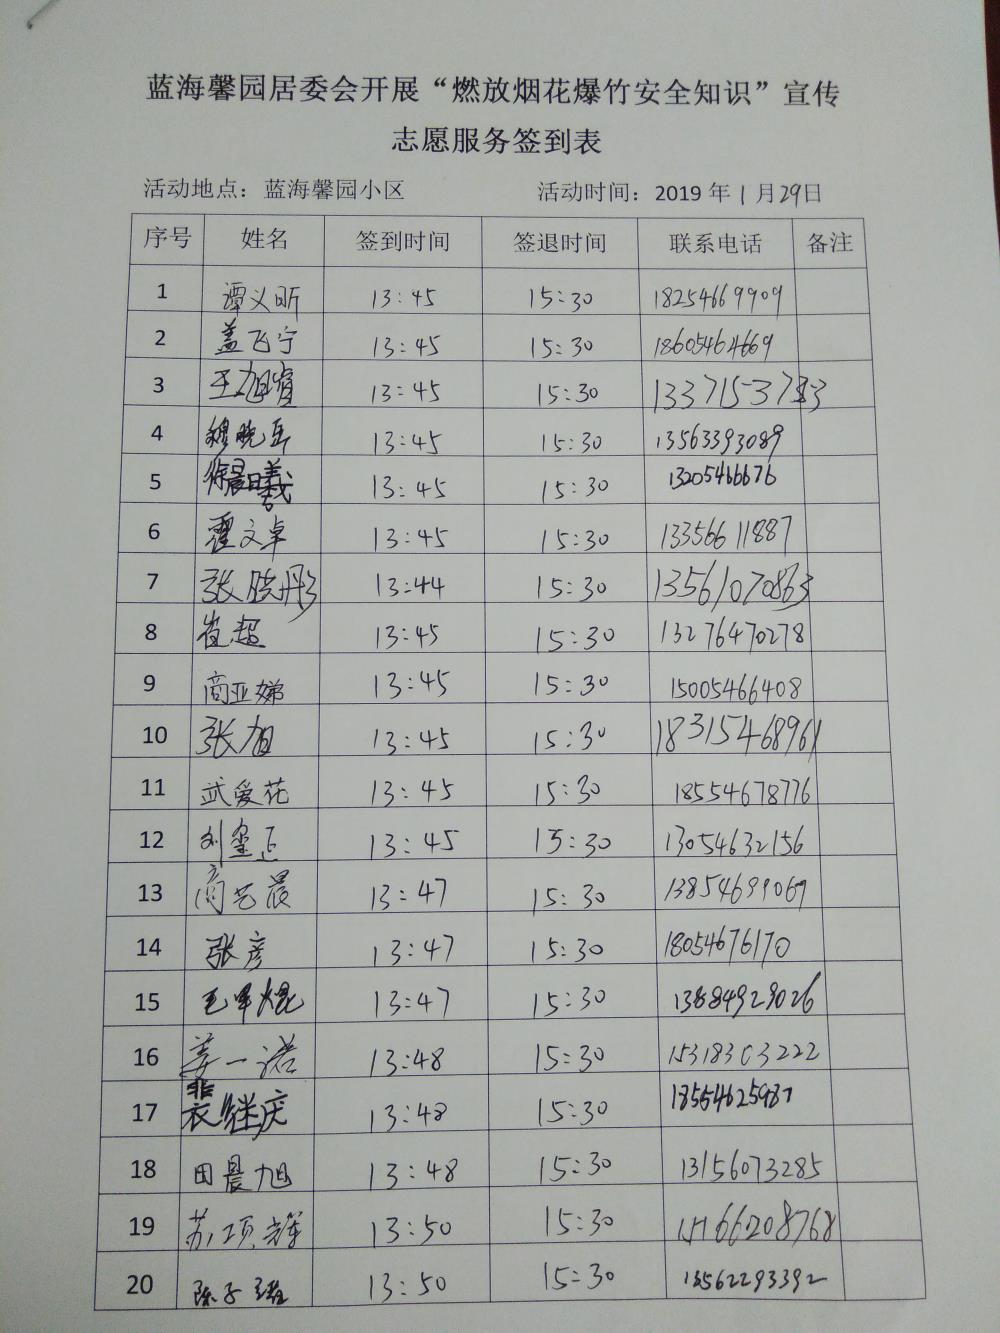 蓝海馨园居委会开展“燃放烟花爆竹安全知识”宣传
志愿服务签到表
活动地点：蓝海馨园小区 活动时间：2019 年 1 月 29 日
序号 姓名 签到时间 签退时间 联系电话 备注
1 谭义昕 13:45 15:30 18254669909
2 盖飞宁 13:45 15:30
3 王旭 13:45 15:30
4 穆晓岳 13:45 15:30 13563393089
5 徐晨曦 13:45 15:30 13205466676
6 霍文卓 13:45 15:30 13356611887
7 张晓彤 13:44 15:30 13561070863
8 崔超 13:45 15:30 13276470278
9 商亚娣 13:45 15:30 15005466408
10 张旭 13:45 15:30 18315468961
11 武爱花 13:45 15:30 18554678776
12 刘玺正 13:45 15:30 13054632156
13 商艺晨 13:47 15:30 13854699069
14 张彦 13:47 15:30 18054676170
15 13:47 15:30 13884929026
16 姜一诺 13:48 15:30 15318303222
17 裴继庆 13:48 15:30 18554625987
18 田晨旭 13:48 15:30 13156073285
19 苏项辉 13:50 15:30 15166208768
20 陈子 13:50 15:30 13562293392